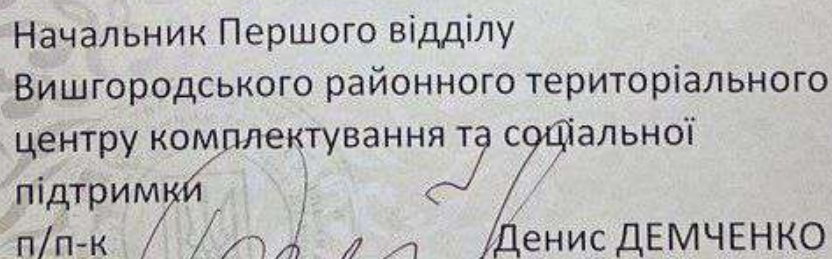 Начальник Першого відділу
Вишгородського районного територіального
центру комплектування та соціальної
підтримки
п/п-к Денис ДЕМЧЕНКО